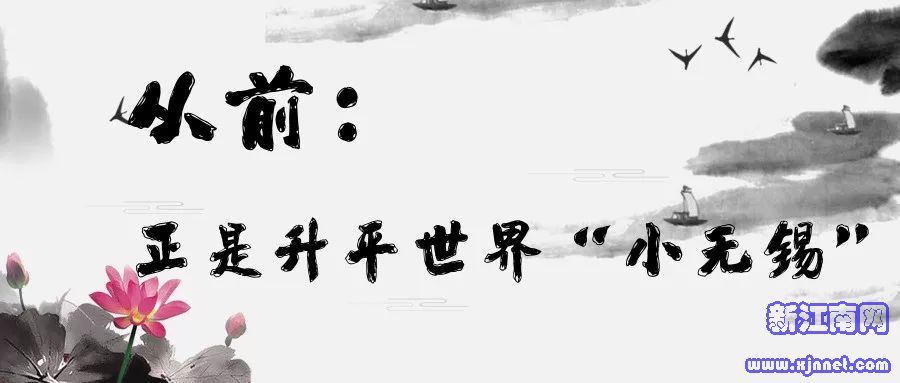 从前：
正是升平世界“小无锡”
新江南网
www.xjnnet.com